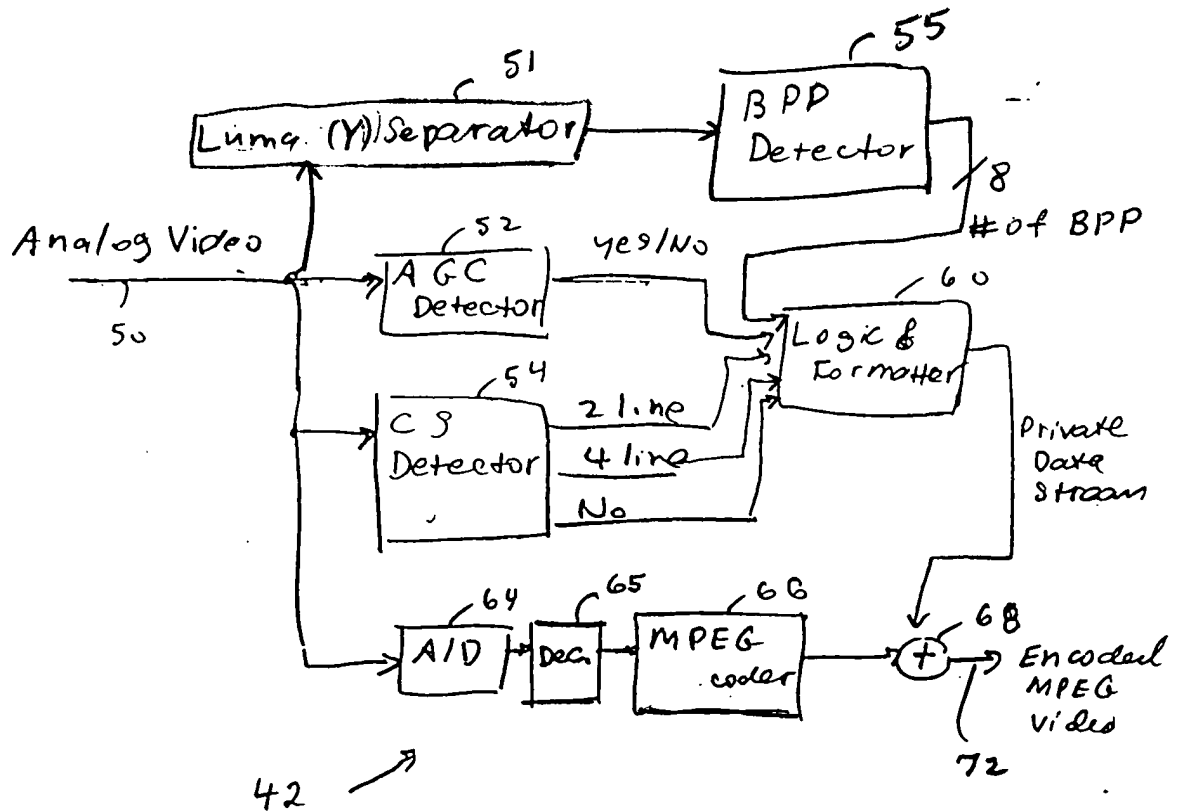 51
Luma (Y) Separator
55
BPP
Detector
8
# of BPP
Analog Video
50
52
AGC
Detector
Yes/No
60
Logic &
Formatter
54
CS
Detector
2 line
4 line
No
Private
Data
Stream
64
A/D
65
Dec.
66
MPEG
coder
68
+
Encoded
MPEG
Video
72
42